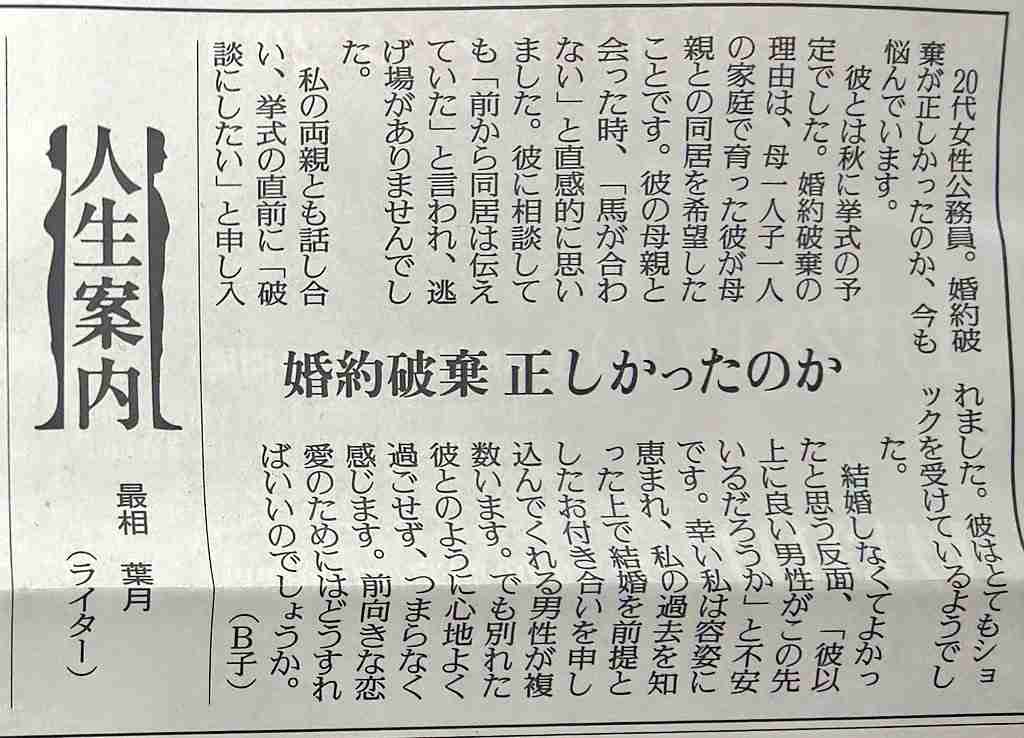 20代女性公務員。婚約破
棄が正しかったのか、今も
悩んでいます。
彼とは秋に挙式の予
定でした。婚約破棄の
理由は、母一人子一人
の家庭で育った彼が母
親との同居を希望した
ことです。彼の母親と
会った時、「馬が合わ
ない」と直感的に思い
ました。彼に相談して
も「前から同居は伝え
ていた」と言われ、逃
げ場がありませんでし
た。
私の両親とも話し合
い、挙式の直前に「破
談にしたい」と申し入
婚約破棄 正しかったのか
れました。彼はとてもショ
ックを受けているようでし
た。
結婚しなくてよかっ
たと思う反面、「彼以
上に良い男性がこの先
いるだろうか」と不安
です。幸い私は容姿に
恵まれ、私の過去を知
った上で結婚を前提と
したお付き合いを申し
込んでくれる男性が複
数います。でも別れた
彼とのように心地よく
過ごせず、つまらなく
感じます。前向きな恋
愛のためにはどうすれ
ばいいのでしょうか。
（B子）
人生案内
最相 葉月
（ライター）